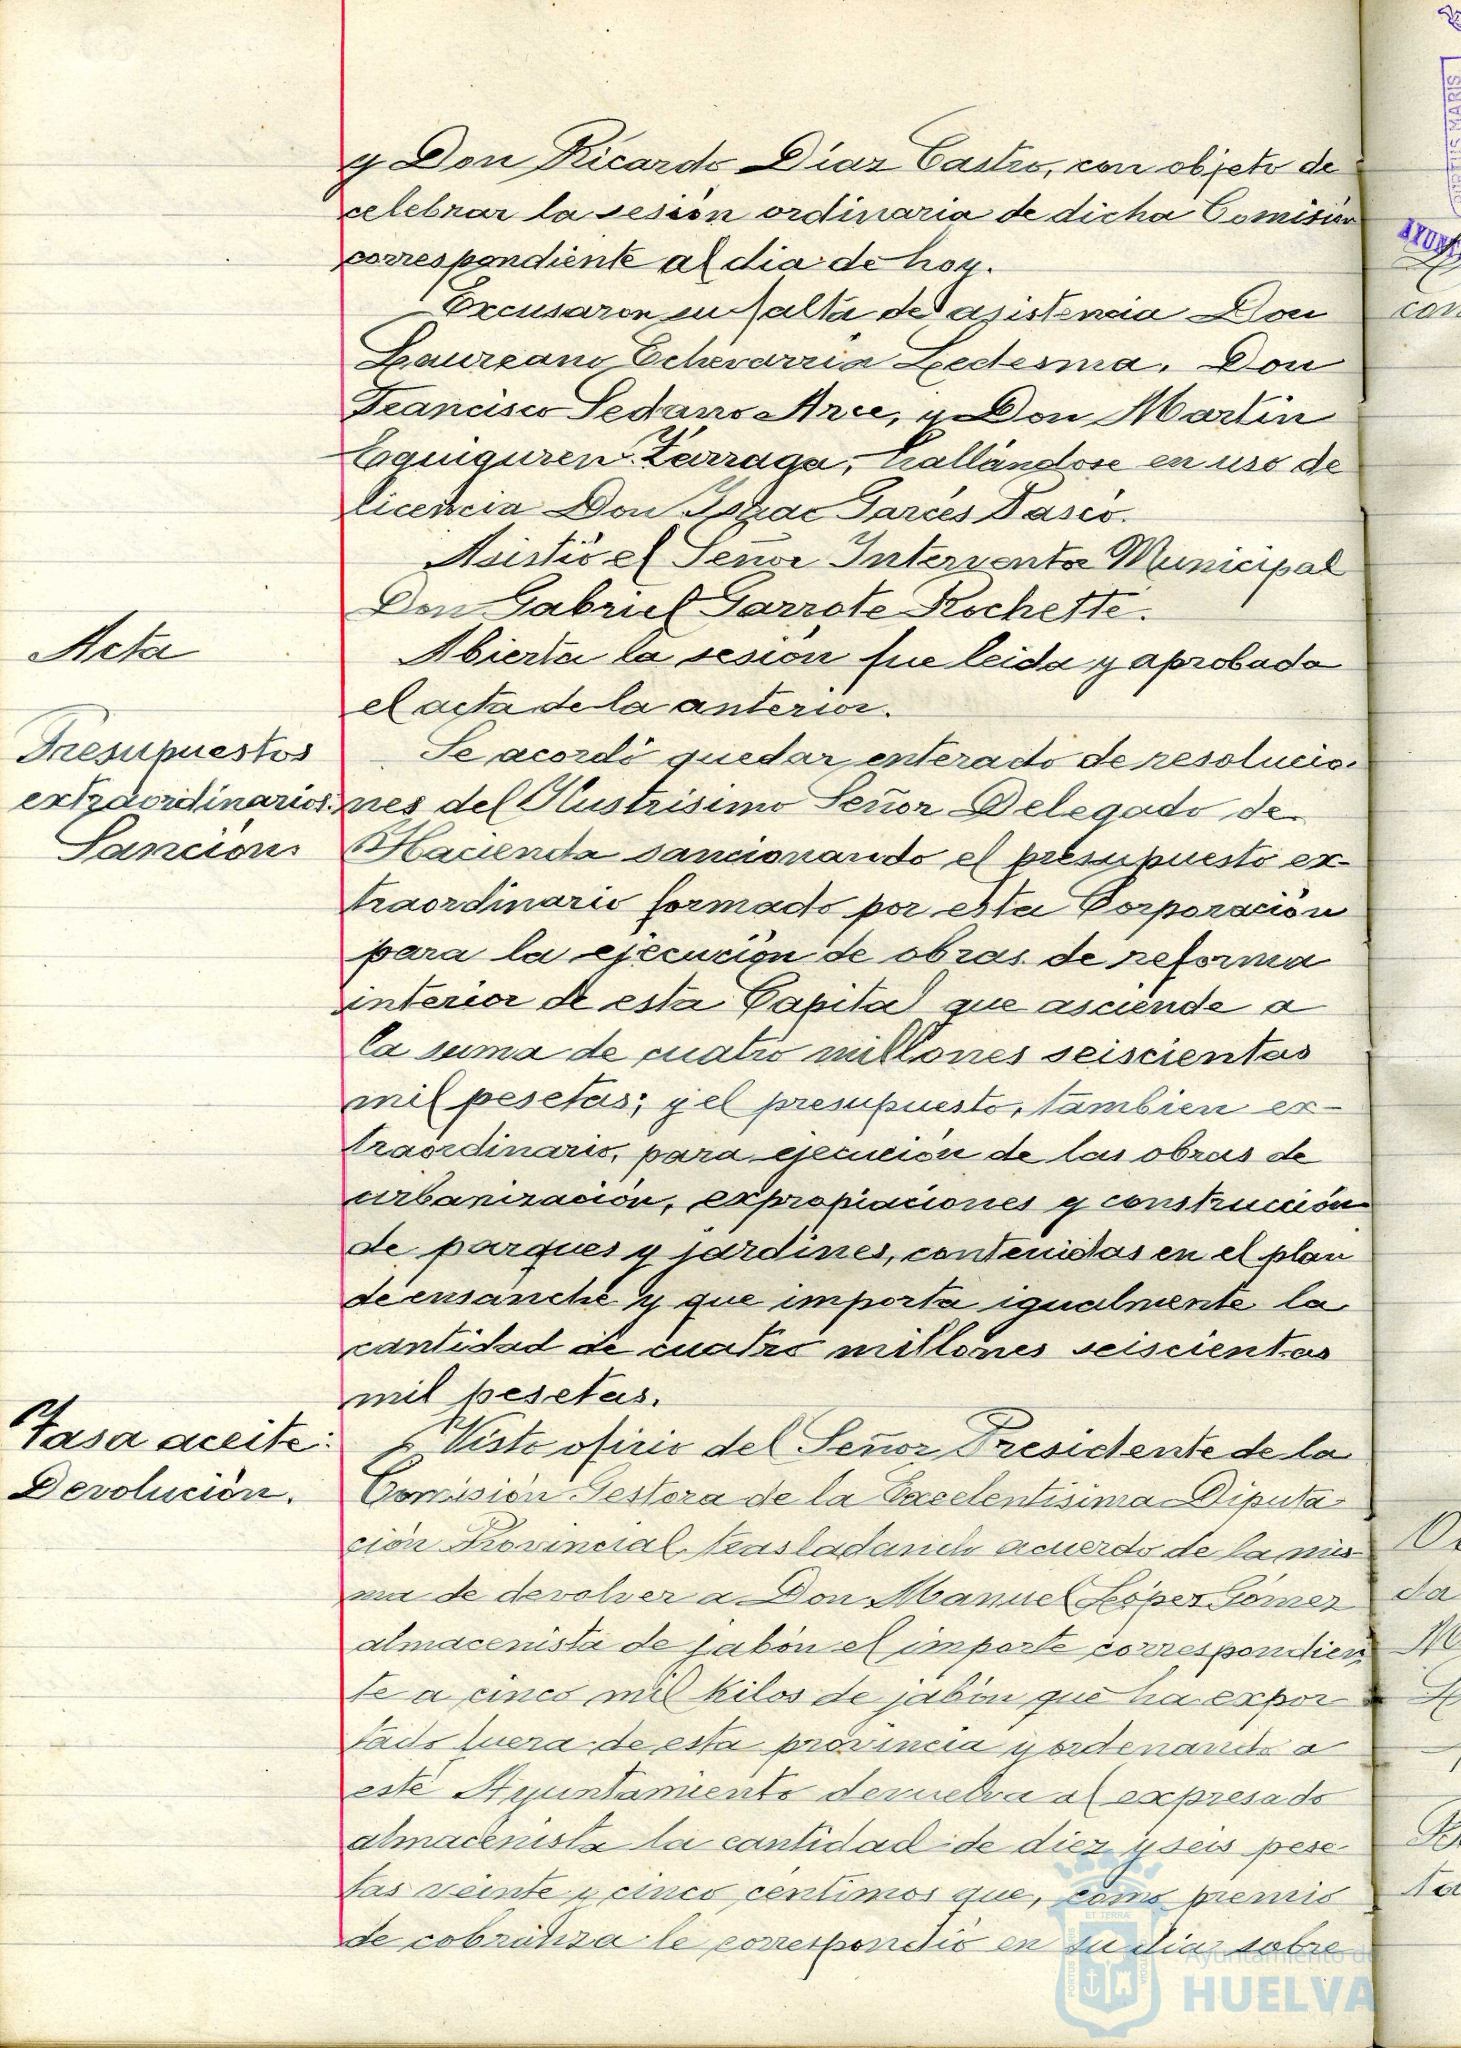 y Don Ricardo Díaz Castro, con objeto de
celebrar la sesión ordinaria de dicha Comisión
correspondiente al dia de hoy.
Excusaron su falta de asistencia Don
Laureano Echevarria Ledesma, Don
Francisco Sedano Arce, y Don Martin
Eguiguren Zárraga, hallándose en uso de
licencia Don Isaac Garcés Pasió.
Asistió el Señor Interventor Municipal
Don Gabriel Garrote Rochette.
Acta
Abierta la sesión fue leida y aprobada
el acta de la anterior.
Presupuestos
extraordinarios.
Sanción.
Se acordó quedar enterado de resolucio-
nes del Ilustrísimo Señor Delegado de
Hacienda sancionando el presupuesto ex-
traordinario formado por esta Corporación
para la ejecución de obras de reforma
interior de esta Capital que asciende a
la suma de cuatro millones seiscientas
mil pesetas; y el presupuesto, tambien ex-
traordinario, para ejecución de las obras de
urbanización, expropiaciones y construcción
de parques y jardines, contenidas en el plan
de ensanche y que importa igualmente la
cantidad de cuatro millones seiscientas
mil pesetas.
Tasa aceite:
Devolución.
Visto oficio del Señor Presidente de la
Comisión Gestora de la Excelentísima Diputa-
ción Provincial, trasladando acuerdo de la mis-
ma de devolver a Don Manuel López Gómez
almacenista de jabón el importe correspondien
te a cinco mil kilos de jabón que ha expor-
tado fuera de esta provincia y ordenando a
este Ayuntamiento devuelva al expresado
almacenista la cantidad de diez y seis pese-
tas veinte y cinco céntimos que, como premio
de cobranza le correspondió en su dia sobre
Ayuntamiento de
HUELVA